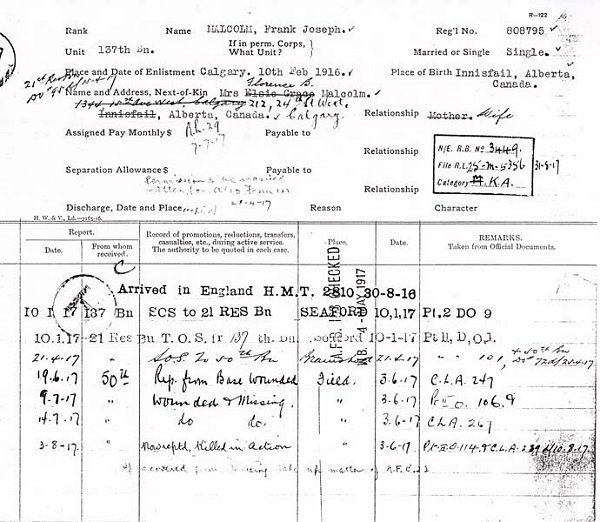 R-122
Rank Name MALCOLM, Frank Joseph. Reg'l No. 808795
Unit 137th Bn. If in perm. Corps, What Unit? Married or Single Single.
Place and Date of Enlistment Calgary. 10th Feb 1916. Place of Birth Innisfail, Alberta, Canada.
Florence B.
Name and Address, Next-of-Kin Mrs Elsie Grace Malcolm.
212, 24th St West,
Innisfail, Alberta, Canada. Calgary. Relationship Mother. Wife
Assigned Pay Monthly $ Payable to
7-7-17
Relationship
N/E. R.B. No 3449.
File R.L. 25-M-5356 31-8-17
Category K.A.
Separation Allowance $ Payable to
Relationship
Discharge, Date and Place Reason Character
H. W. & V., Ld.
Report. Record of promotions, reductions, transfers, casualties, etc., during active service. The authority to be quoted in each case. Place. Date. REMARKS. Taken from Official Documents.
Date. From whom received.
CHECKED
4-MAY 1917
Arrived in England H.M.T. 2810 30-8-16
10 1 17 137 Bn SCS to 21 RES Bn SEAFORD 10,1,17 Pt.2 DO 9
10.1.17 21 Res Bn T.O.S. fr 137 th. Bn. Seaford 10-1-17 Pt II, D,O,1.
21.4.17 " SOS to 50th Bn 21.4.17 " " 101,
19.6.17 50th Rep. from Base Wounded Field. 3.6.17 C.L.A. 247
9.7.17 " Wounded & Missing. " 3.6.17 Pt II O. 106.9
14.7.17 " do do. " 3.6.17 C.L.A. 267
3-8-17 Killed in Action " 3-6-17